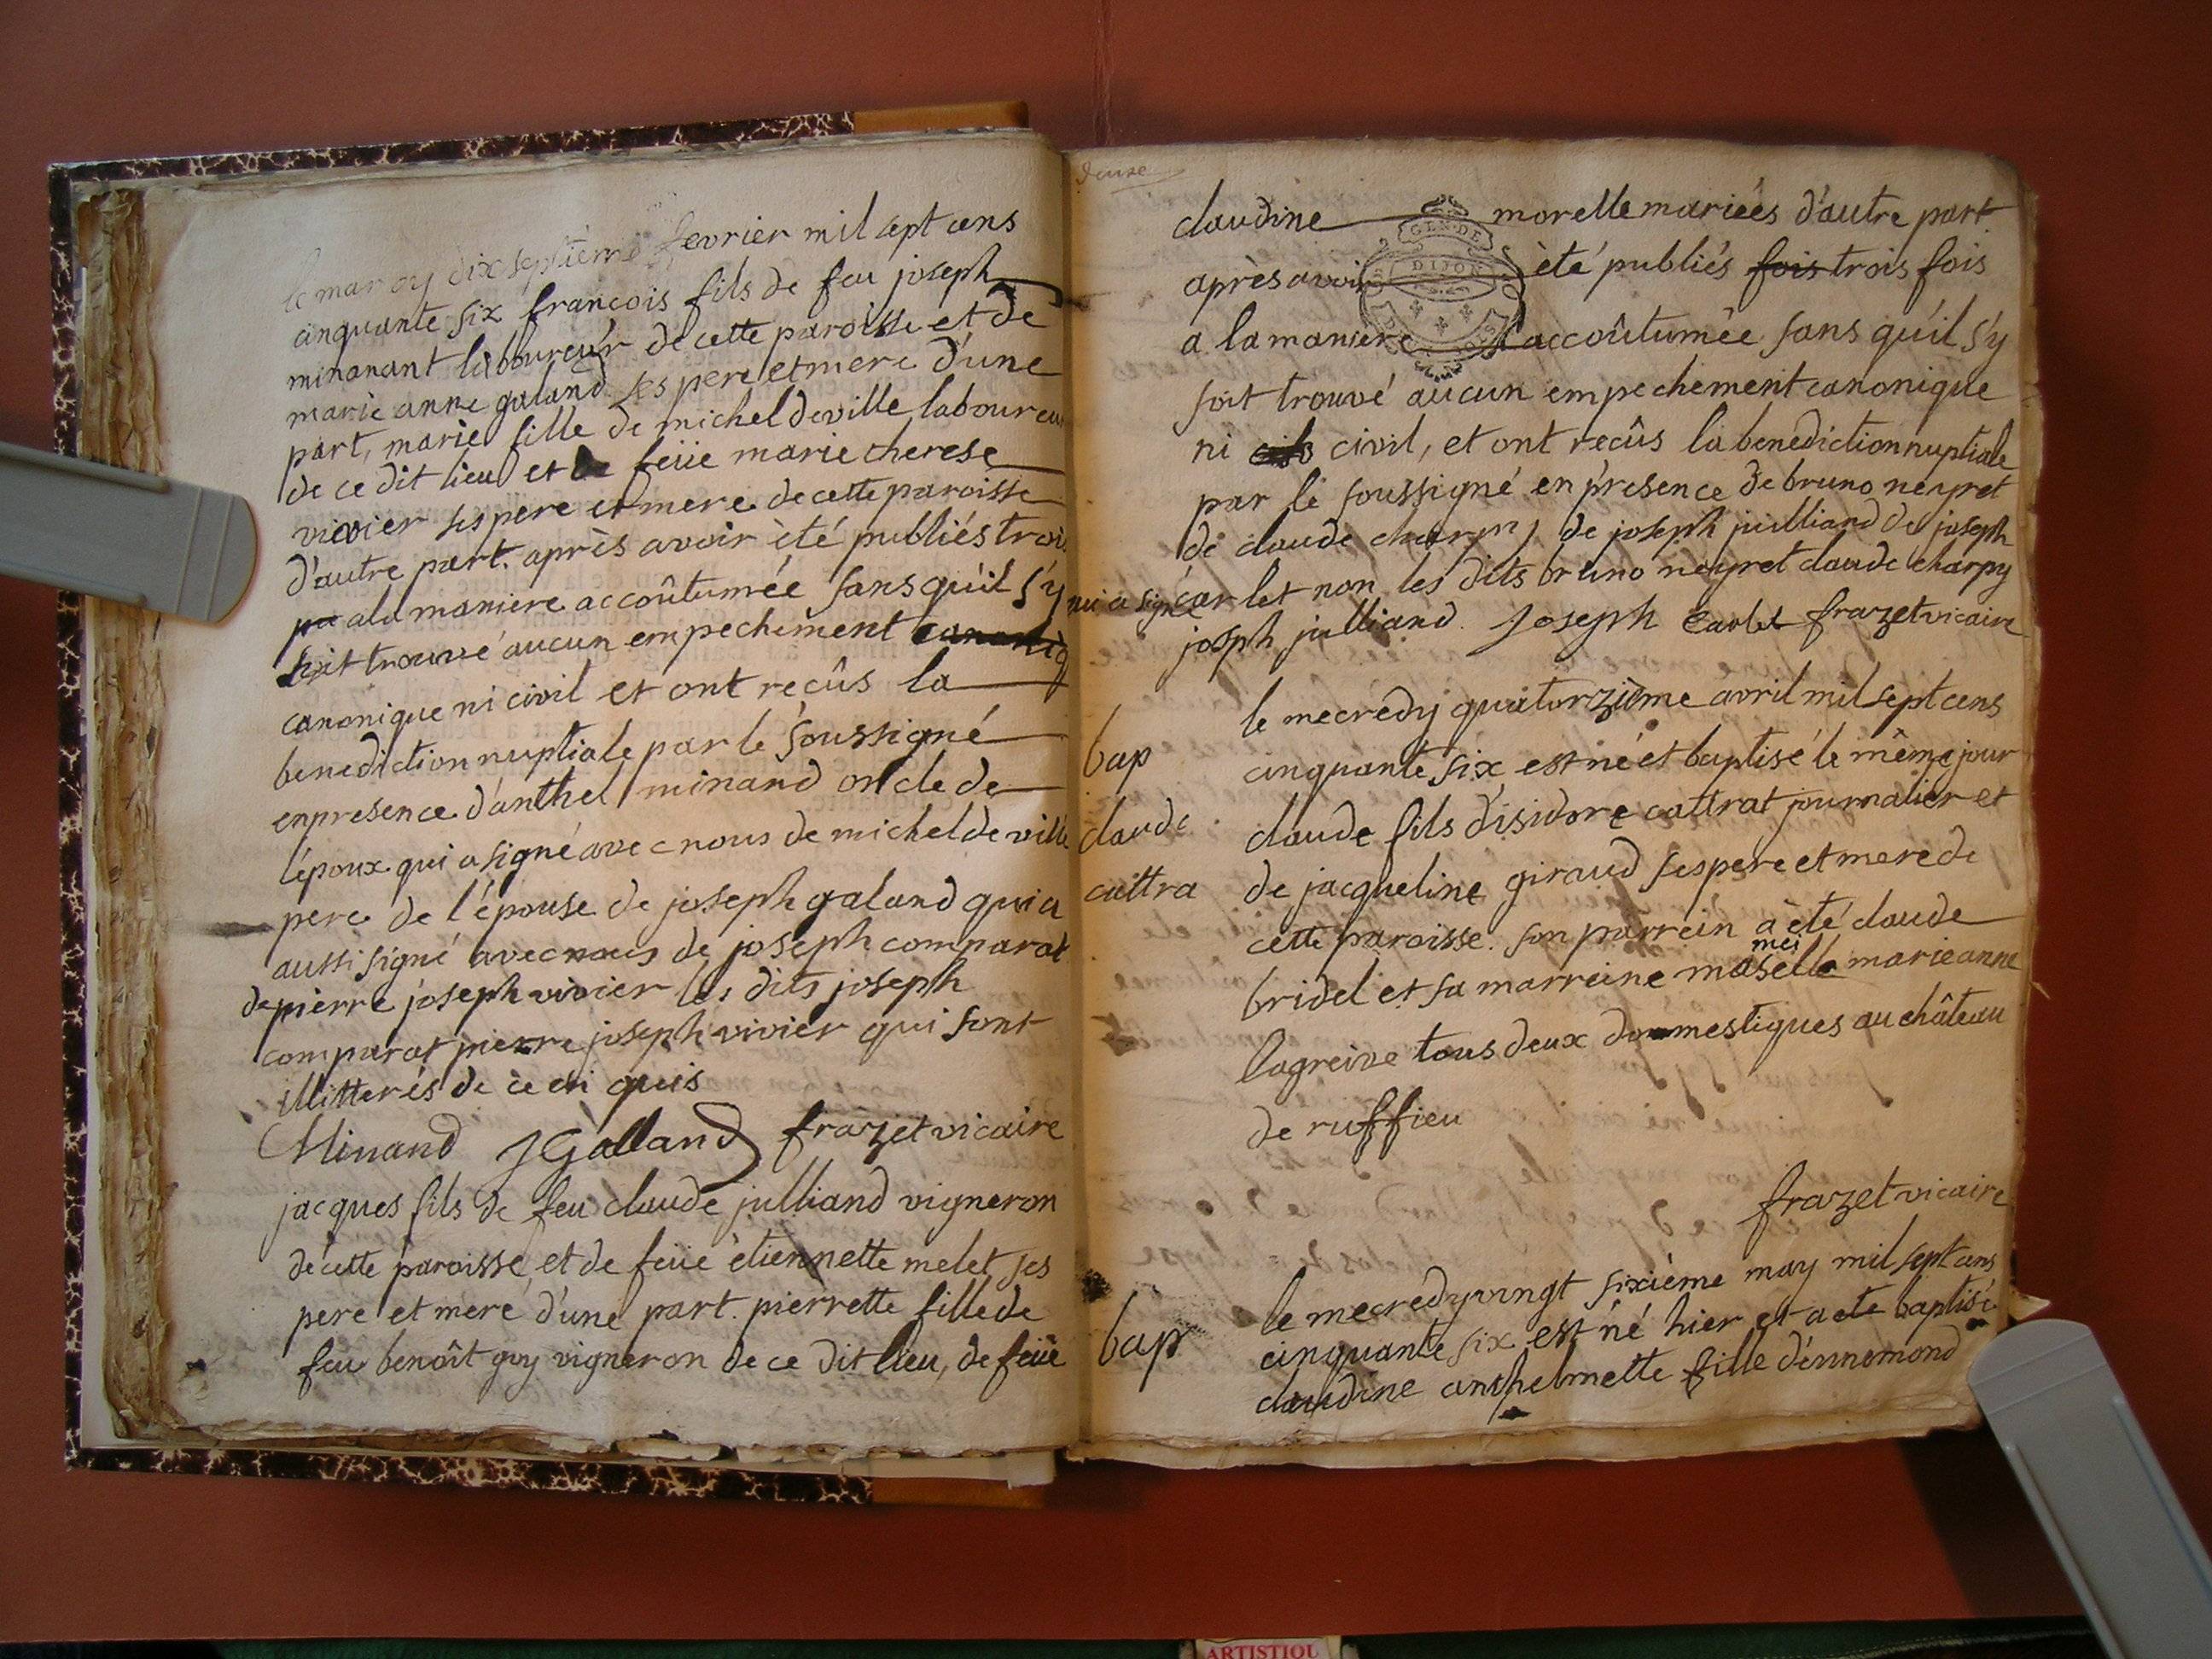 le mardy dix septième fevrier mil sept cens
cinquante six françois fils de feu joseph
minanant laboureur de cette paroisse et de
marie anne galand ses pere et mere d'une
part, marie fille de michel deville laboureur
de ce dit lieu et de feüe marie therese
vievier ses pere et mere de cette paroisse
d'autre part. après avoir èté publiés trois
pa a la maniere accoûtumée sans qu'il s'y
soit trouvé aucun empechement canoniq
canonique ni civil et ont reçûs la
benediction nuptiale par le soussigné
en presence d'anthel minand oncle de
l'époux qui a signé avec nous de michel deville
pere de l'épouse de joseph galand qui a
aussi signé avec nous de joseph comparat
de pierre joseph vivier les dits joseph
comparat pierre joseph vivier qui sont
illitterés de ce en quis
Minand JGalland frazet vicaire
jacques fils de feu claude julliand vigneron
de cette paroisse et de feüe ètiennette melet ses
pere et mere d'une part. pierrette fille de
feu benoît guy vigneron de ce dit lieu, de feüe
douze
claudine morelle mariées d'autre part.
après avoir èté publiés fois trois fois
GEN DE
DIJON
a la maniere accoûtumée sans qu'il s'y
soit trouvé aucun empechement canonique
ni civil, et ont reçûs la benediction nuptiale
par le soussigné en présence de bruno neyret
de claude charpy de joseph juilliand de joseph
qui a signé carlet non les dits bruno neyret claude charpy
joseph julliand. Joseph Carlet frazet vicaire
bap
claude
cattra
le mecredy quatorzième avril mil sept cens
cinquante six est né et baptisé le même jour
claude fils d'isidore cattrat journalier et
de jacqueline giraud ses pere et mere de
cette paroisse. son parrein a èté claude
mei
bridel et sa marreine maselle marie anne
lagreive tous deux domestiques au château
de ruffieu
frazet vicaire
bap
le mecredy vingt sixième may mil sept cens
cinquante six est né hier et a ete baptisé
claudine anthelmette fille d'ennemond
ARTISTIQU